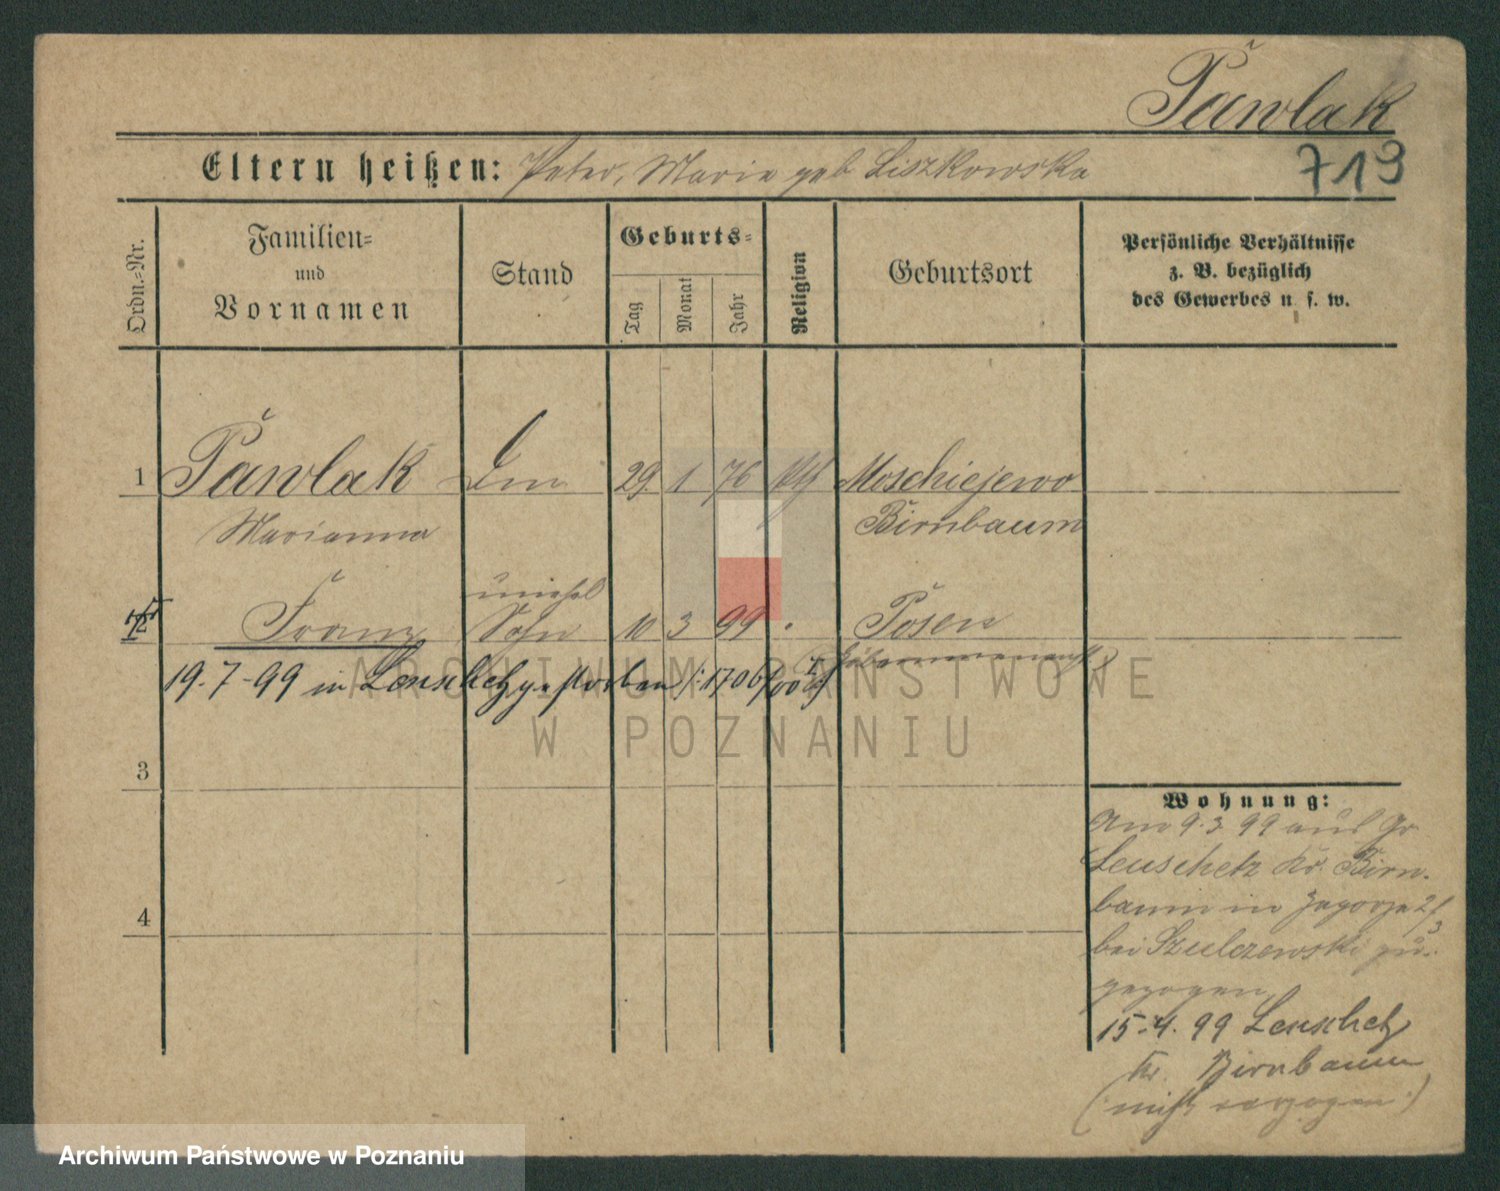 Pawlak
Eltern heißen: Peter, Marie geb Liszkowska
719
Ordn.=Nr.
Familien=
und
Vornamen
Stand
Geburts=
Tag
Monat
Jahr
Religion
Geburtsort
Persönliche Verhältnisse
z. B. bezüglich
des Gewerbes u. s. w.
1 Pawlak 29. 1 76 kth Moschiejewo
Marianna Birnbaum
unehel
2 Franz Sohn 10 3 99 " Posen
19.-7-99 in Leuschetz gestorben /:1706/00
3
4
Wohnung:
Am 9.3 99 aus Gr
Leuschetz Kr. Birn-
baum in Zagorze 2/3
bei Szulczewski zu-
gezogen
15.4.99 Leuschetz
Kr. Birnbaum
(: verzogen :)
ARCHIWUM PAŃSTWOWE
W POZNANIU
Archiwum Państwowe w Poznaniu